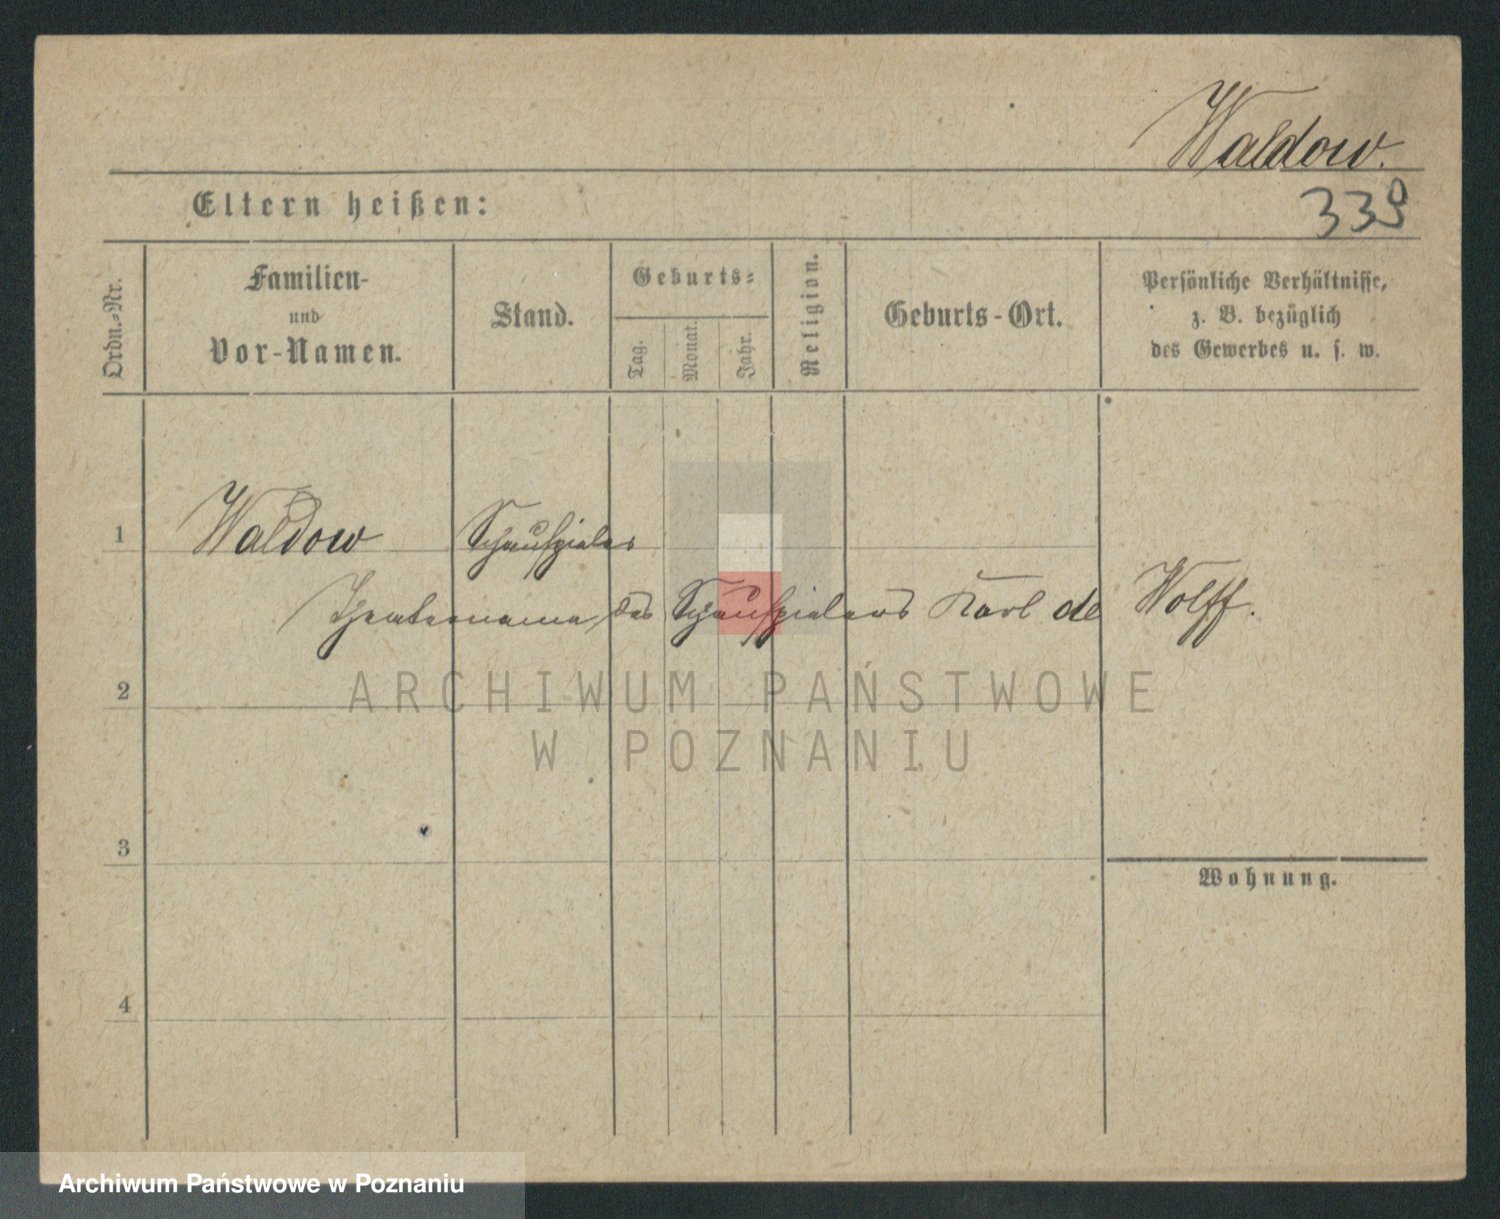 Waldow.
Eltern heißen:
339
Ordn.-Nr.
Familien-
und
Vor-Namen.
Stand.
Geburts-
Tag.
Monat.
Jahr.
Religion.
Geburts-Ort.
Persönliche Verhältnisse,
z. B. bezüglich
des Gewerbes u. s. w.
1 Waldow Schauspieler
Theatername des Schauspielers Karl de Wolff.
ARCHIWUM PAŃSTWOWE
2
W POZNANIU
3
Wohnung.
4
Archiwum Państwowe w Poznaniu